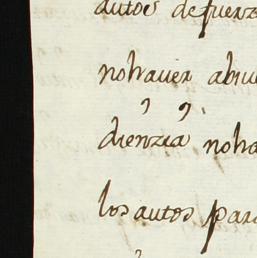 autos defuerz
nohaver abiu
dienzia noha
los autos para